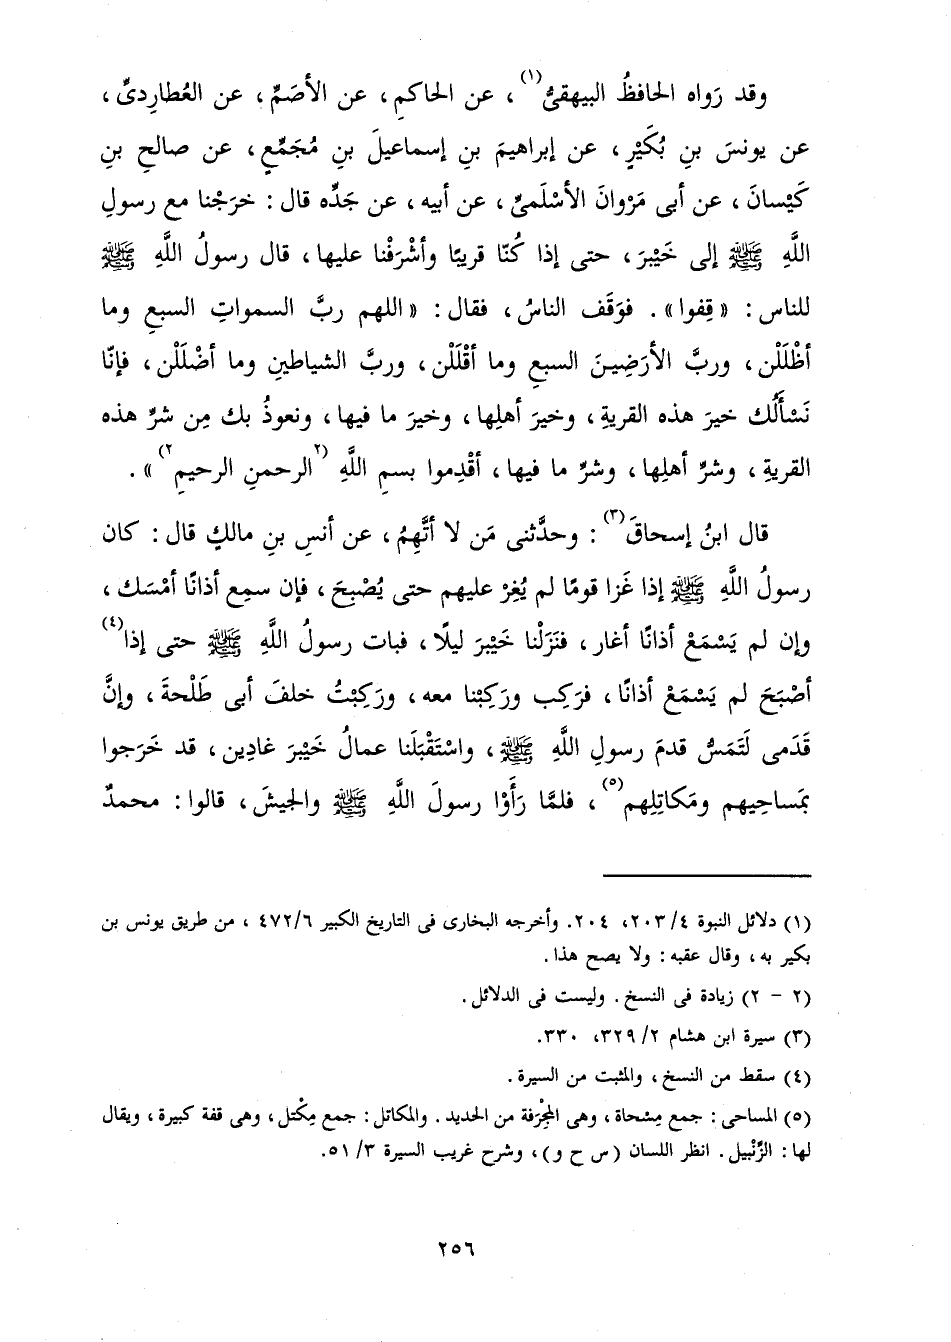 وقد رَواه الحافظُ البيهقىُّ(١)، عن الحاكمِ، عن الأصَمِّ، عن العُطارِدىِّ،
عن يونسَ بنِ بُكَيْرٍ، عن إبراهيمَ بنِ إسماعيلَ بنِ مُجَمِّعٍ، عن صالحِ بنِ
كَيْسانَ، عن أبى مَرْوانَ الأسْلَمىِّ، عن أبيه، عن جَدِّه قال: خرَجْنا مع رسولِ
اللَّهِ ﷺ إلى خَيْبرَ، حتى إذا كُنّا قريبًا وأشْرَفْنا عليها، قال رسولُ اللَّهِ ﷺ
للناسِ: «قِفوا». فوَقَف الناسُ، فقال: «اللهم ربَّ السمواتِ السبعِ وما
أظْلَلْن، وربَّ الأرَضِينَ السبعِ وما أقْلَلْن، وربَّ الشياطينِ وما أضْلَلْن، فإنّا
نَسْأَلُك خيرَ هذه القريةِ، وخيرَ أهلِها، وخيرَ ما فيها، ونعوذُ بك مِن شرِّ هذه
القريةِ، وشرِّ أهلِها، وشرِّ ما فيها، أقْدِموا بسمِ اللَّهِ (٢الرحمنِ الرحيمِ٢)».
قال ابنُ إسحاقَ(٣): وحدَّثنى مَن لا أتَّهِمُ، عن أنسِ بنِ مالكٍ قال: كان
رسولُ اللَّهِ ﷺ إذا غَزا قومًا لم يُغِرْ عليهم حتى يُصْبِحَ، فإن سمِع أذانًا أمْسَك،
وإن لم يَسْمَعْ أذانًا أغار، فنَزَلْنا خَيْبرَ ليلًا، فبات رسولُ اللَّهِ ﷺ حتى إذا(٤)
أصْبَحَ لم يَسْمَعْ أذانًا، فرَكِب ورَكِبْنا معه، ورَكِبْتُ خلفَ أبى طَلْحةَ، وإنَّ
قَدَمى لَتَمَسُّ قدمَ رسولِ اللَّهِ ﷺ، واسْتَقْبَلَنا عمالُ خَيْبرَ غادِين، قد خَرَجوا
بمَساحِيهم ومَكاتِلِهم(٥)، فلمَّا رَأَوْا رسولَ اللَّهِ ﷺ والجيشَ، قالوا: محمدٌ
(١) دلائل النبوة ٤/ ٢٠٣، ٢٠٤. وأخرجه البخارى فى التاريخ الكبير ٦/ ٤٧٢، من طريق يونس بن
بكير به، وقال عقبه: ولا يصح هذا.
(٢ - ٢) زيادة فى النسخ. وليست فى الدلائل.
(٣) سيرة ابن هشام ٢/ ٣٢٩، ٣٣٠.
(٤) سقط من النسخ، والمثبت من السيرة.
(٥) المساحى: جمع مِسْحاة، وهى المِجْرَفة من الحديد. والمكاتل: جمع مِكْتل، وهى قفة كبيرة، ويقال
لها: الزِّنْبيل. انظر اللسان (س ح و)، وشرح غريب السيرة ٣/ ٥١.
٢٥٦